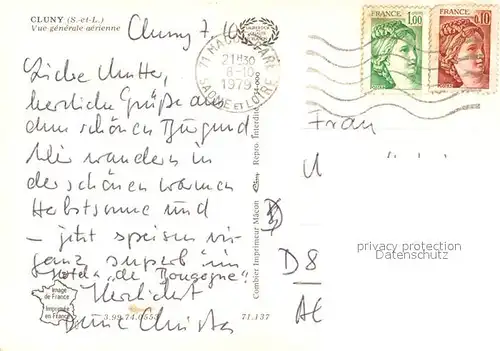 CLUNY (S.-et-L.)
Vue générale aérienne
Cluny 7.10
Liebe Mutter,
herzliche Grüße aus
dem schönen Burgund
Wir wandern in
der schönen warmen
Herbstsonne und
– jetzt speisen wir
ganz superb im
Hotel "de Bourgogne".
Herzlichst
Deine Christa
Image
de France
Imprimée
en France
3.99.74.0553
71.137
Combier Imprimeur Mâcon
Repro. Interdite
21H30
8-10
1979
SAONE ET LOIRE
FRANCE
1,00
POSTES
FRANCE
0,10
POSTES
Frau
D 8
privacy protection
Datenschutz